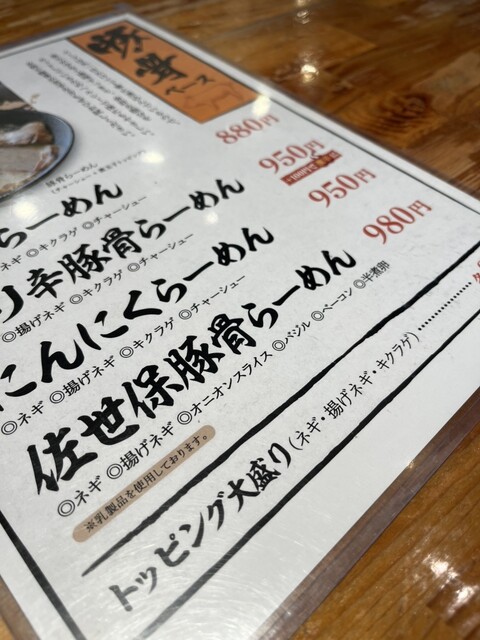 豚骨
ベース
880円
らーめん
ネギ ◎キクラゲ ◎チャーシュー
950円
リ辛豚骨らーめん
◎揚げネギ ◎キクラゲ ◎チャーシュー
950円
にんにくらーめん
◎ネギ ◎揚げネギ ◎キクラゲ ◎チャーシュー
980円
佐世保豚骨らーめん
◎ネギ ◎揚げネギ ◎オニオンスライス ◎バジル ◎ベーコン ◎半煮卵
※乳製品を使用しております。
トッピング大盛り(ネギ・揚げネギ・キクラゲ)